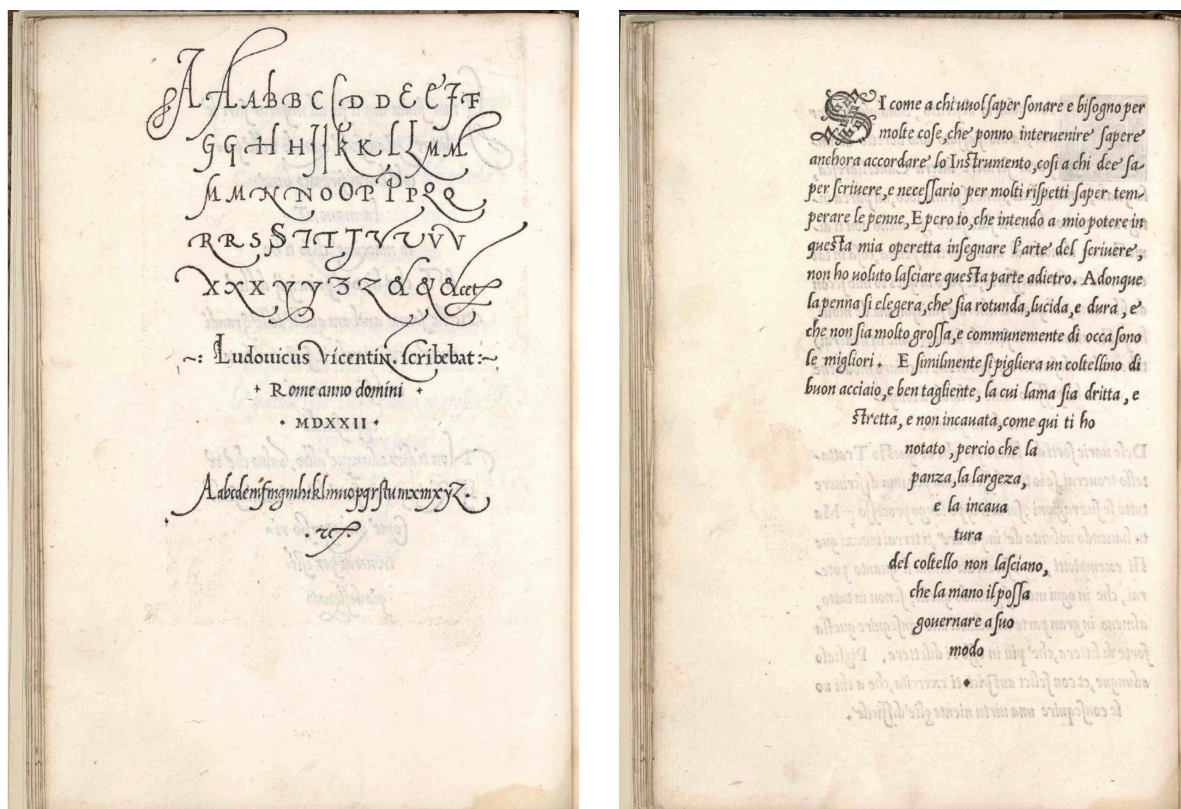 A A A b B C C D D E E F F
G G H H I J K K L L M M
M M N N N O O P P P Q Q
R R S S T T T V U V V V
X X X Y Y Z Z & & & cet
~: Ludouicus Vicentin. scribebat :~
Rome anno domini
• MDXXII •
SI come a chi uuol saper sonare e bisogno per
molte cose, che ponno interuenire sapere
anchora accordare lo Instrumento, cosi a chi dee sa-
per scriuere, e necessario per molti rispetti saper tem-
perare le penne, E pero io, che intendo a mio potere in
questa mia operetta insegnare l'arte del scriuere,
non ho uoluto lasciare questa parte adietro. Adonque
la penna si elegera, che sia rotunda, lucida, e dura, e
che non sia molto grossa, e communemente di occa sono
le migliori. E similmente si pigliera un coltellino di
buon acciaio, e ben tagliente, la cui lama sia dritta, e
stretta, e non incauata, come qui ti ho
notato, percio che la
panza, la largeza,
e la incaua
tura
del coltello non lasciano,
che la mano il possa
gouernare a suo
modo